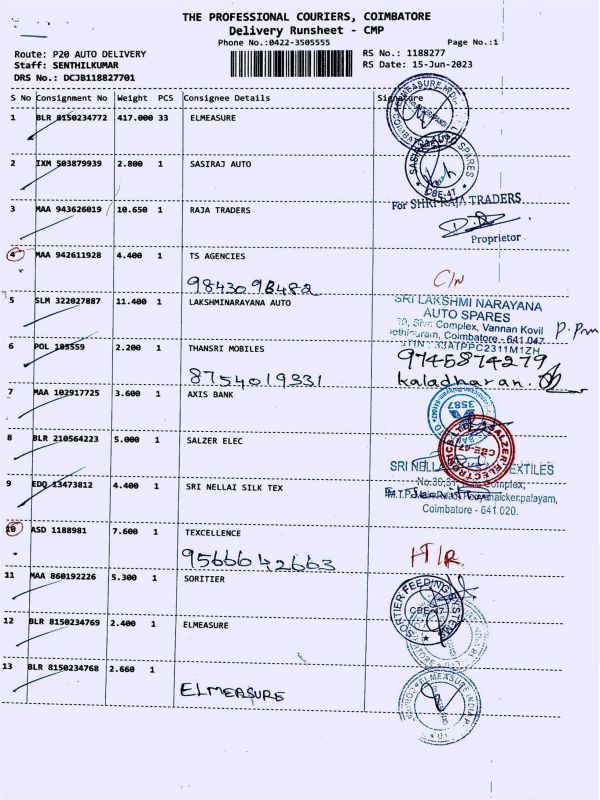 THE PROFESSIONAL COURIERS, COIMBATORE
Delivery Runsheet - CMP
Phone No.:0422-3505555 Page No.:1
Route: P20 AUTO DELIVERY RS No.: 1188277
Staff: SENTHILKUMAR RS Date: 15-Jun-2023
DRS No.: DCJB118827701
S No Consignment No Weight PCS Consignee Details Signature
1 BLR 8150234772 417.000 33 ELMEASURE
2 IXM 503879939 2.800 1 SASIRAJ AUTO
SASIRAJ AUTO SPARES
CBE-47
3 MAA 943626019 10.650 1 RAJA TRADERS
For SHRI RAJA TRADERS
Proprietor
4 MAA 942611928 4.400 1 TS AGENCIES
C/N
5 SLM 322027887 11.400 1 LAKSHMINARAYANA AUTO
SRI LAKSHMI NARAYANA
AUTO SPARES
Complex, Vannan Kovil
Coimbatore - 641 047
6 POL 1 2.200 1 THANSRI MOBILES
9745874279
8754019331
kaladharan.
7 MAA 102917725 3.600 1 AXIS BANK
3587
8 BLR 210564223 5.000 1 SALZER ELEC
SALZER ELECTRONICS
CBE-47
9 EDQ 13473812 4.400 1 SRI NELLAI SILK TEX
SRI NELLAI TEXTILES
Complex,
Coimbatore - 641 020.
10 ASD 1188981 7.600 1 TEXCELLENCE
9566642663
11 MAA 860192226 5.300 1 SORITIER
SORTIER FEEDING SYSTEMS
CBE-47
12 BLR 8150234769 2.400 1 ELMEASURE
13 BLR 8150234768 2.660 1
ELMEASURE
ELMEASURE INDIA P